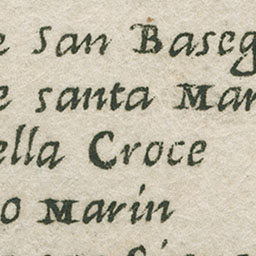 e San Baseg
e santa Mar
ella Croce
o Marin